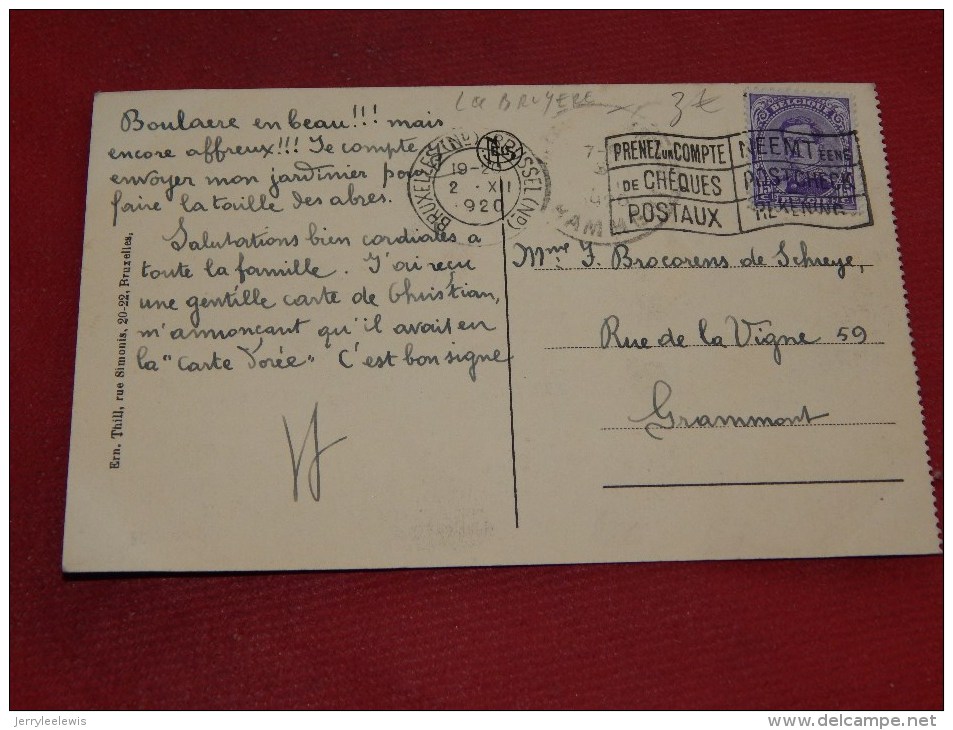 La BRUYERE 3€
Boulaere en beau!!! mais
encore affreux!!! Je compte
envoyer mon jardinier pour
faire la taille des abres.
Salutations bien cordiales à
toute la famille. J'ai reçu
une gentille carte de Christian,
m'annonçant qu'il avait eu
la "Carte Dorée" C'est bon signe
Ern. Thill, rue Simonis, 20-22, Bruxelles.
BRUXELLES (Nd) BRUSSEL (Nd)
19-20
2 XII
1920
PRENEZ UN COMPTE
DE CHÈQUES
POSTAUX
NEEMT EENE
POSTCHECK
REKENING
BELGIQUE
BELGIË
Mme J. Brocorens de Schreye,
Rue de la Vigne 59
Grammont
jerryleelewis
www.delcampe.net